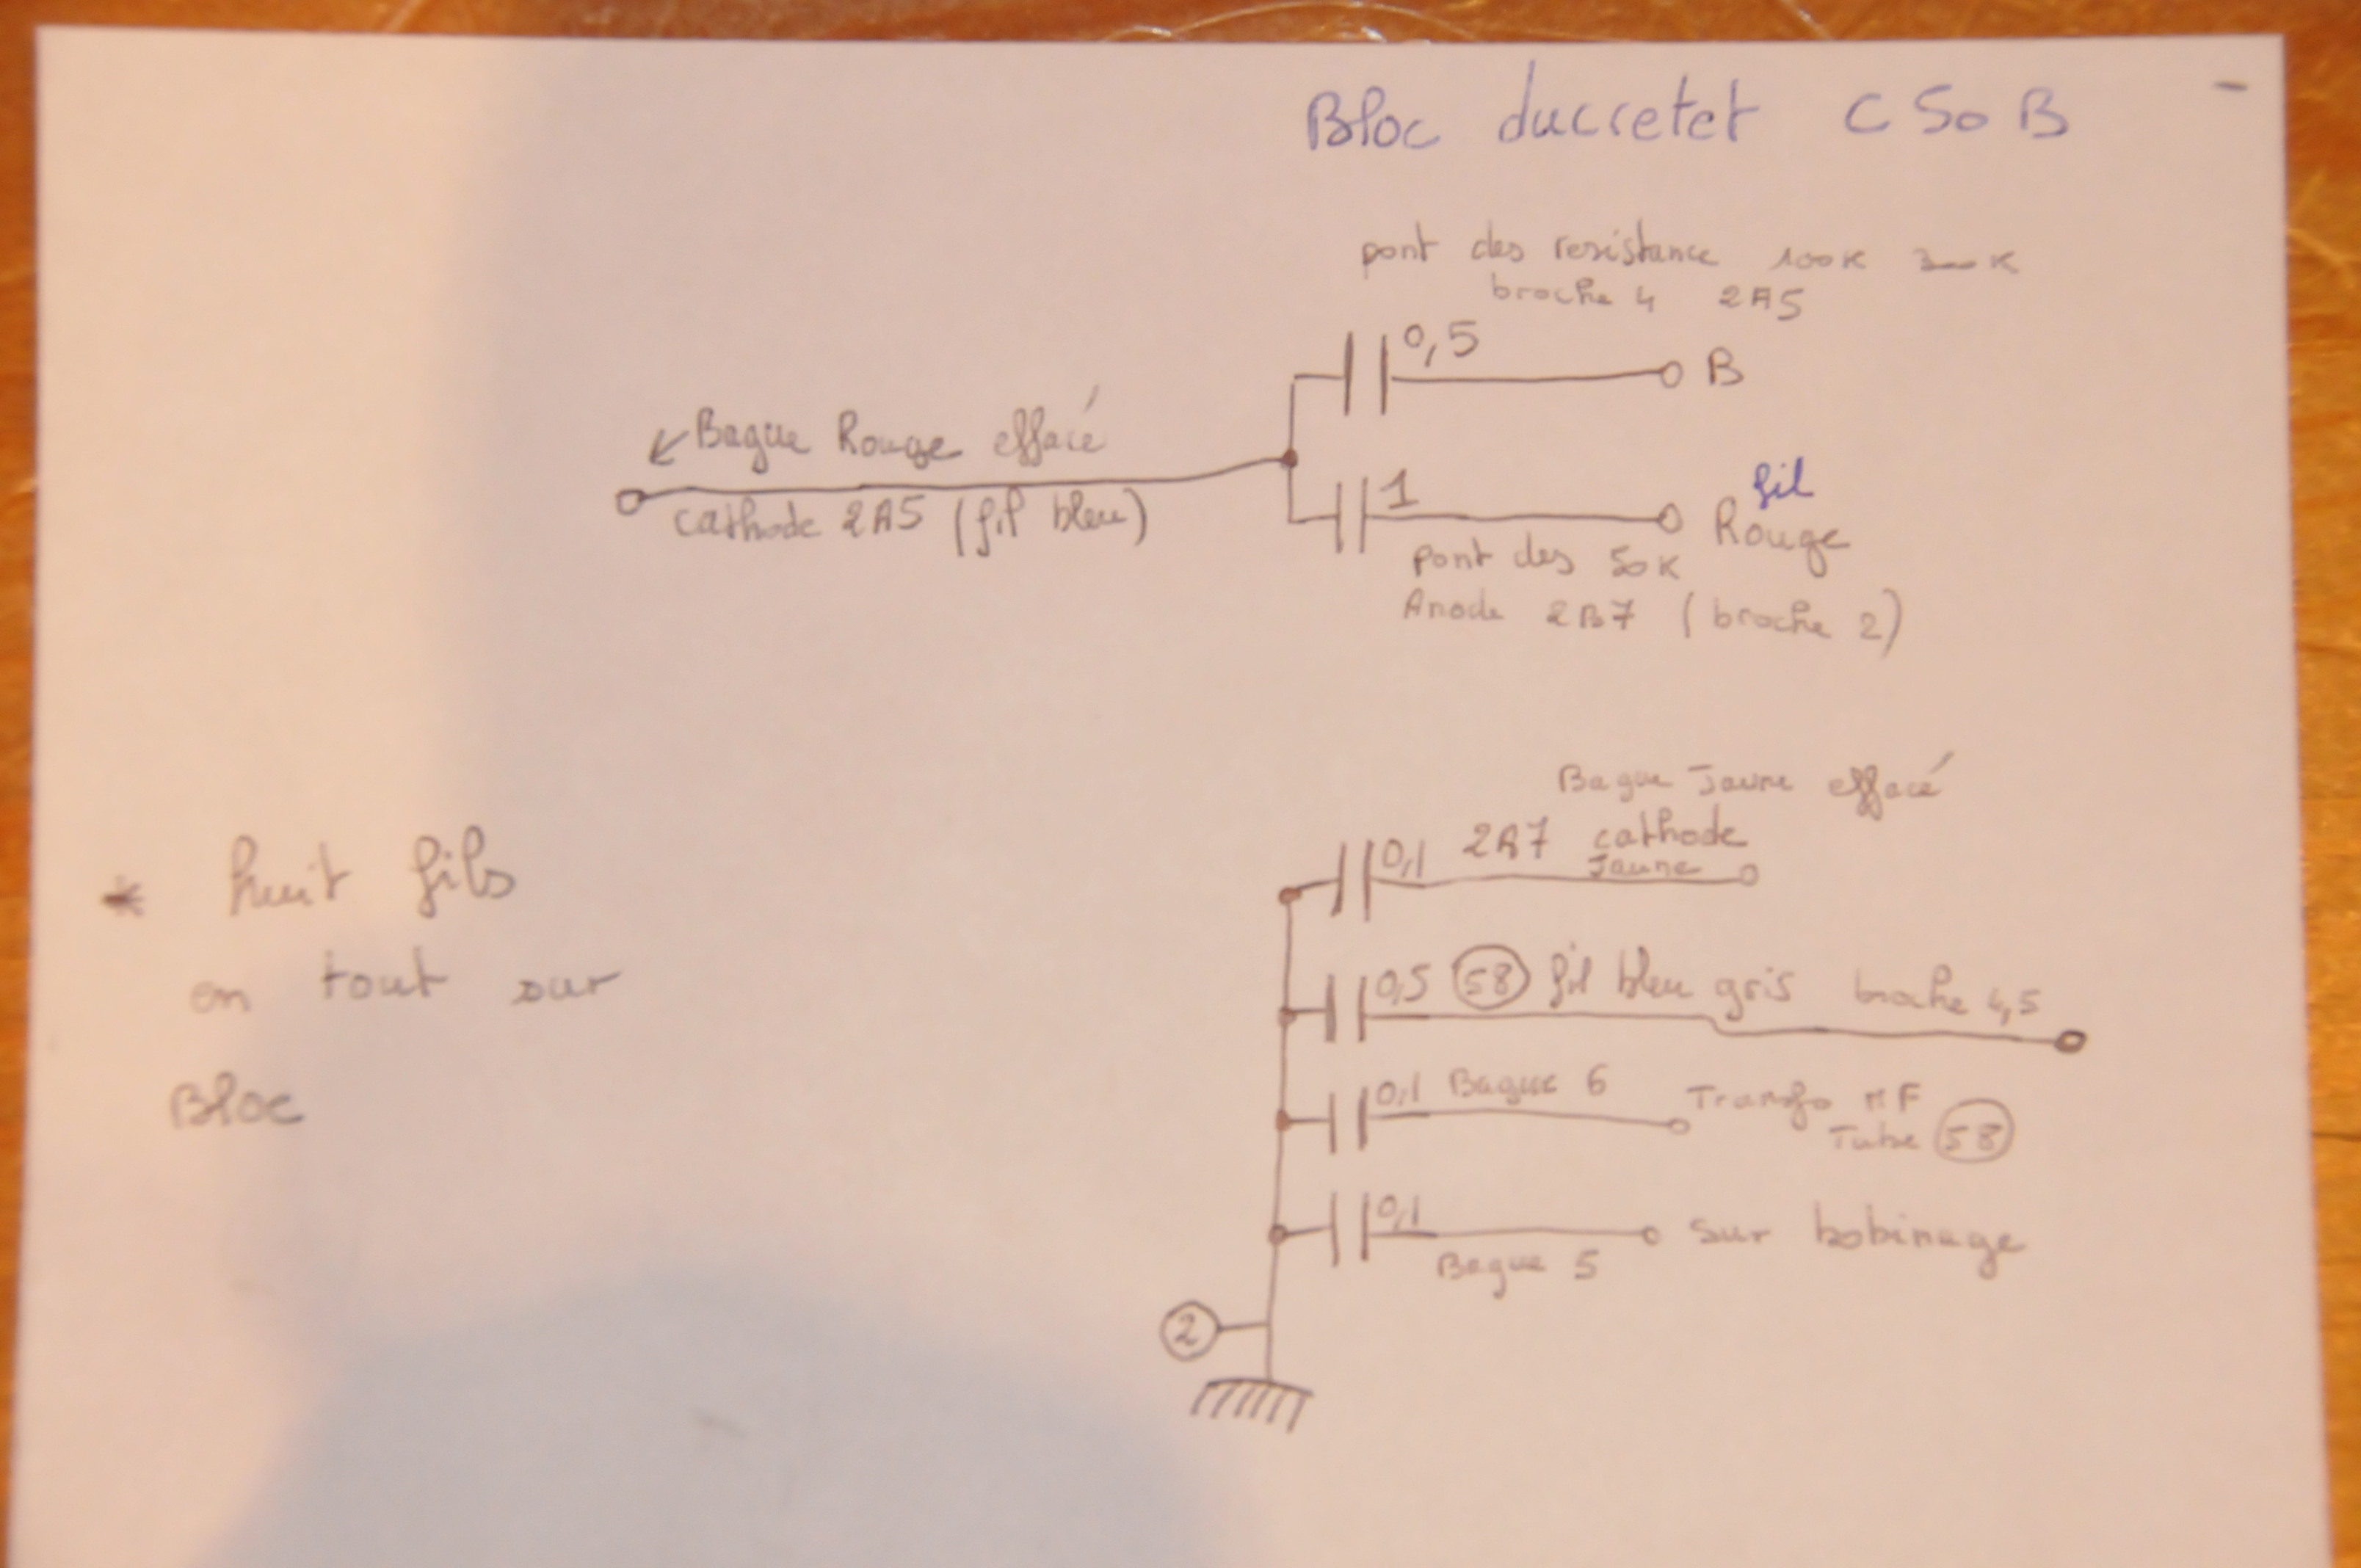 Bloc ducretet C50B
pont des resistance 100K K
broche 4 2A5
0,5
B
Bague Rouge effacé
cathode 2A5 (fil bleu)
1
fil
Rouge
pont des 50K
Anode 2B7 (broche 2)
Bague Jaune effacé
0,1 2A7 cathode
Jaune
* huit fils
en tout sur
Bloc
0,5 58 fil bleu gris broche 4,5
0,1 Bague 6 Transfo MF
Tube 58
0,1 sur bobinage
Bague 5
2